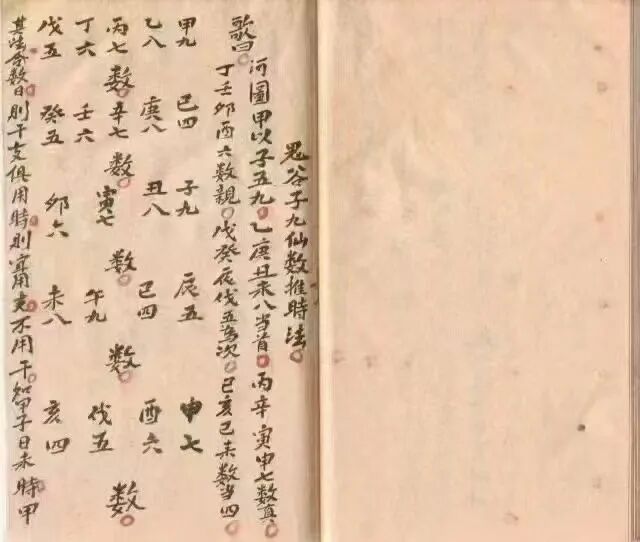 鬼谷子九仙数推時法
歌曰
河圖甲以子五九乙庚丑未八当首丙辛寅申七数真
丁壬夘酉六数親戊癸辰伐五為次巳亥己未数当四
甲九 乙八 丙七 丁六 戊五 数
己四 庚八 辛七 壬六 癸五 数
子九 丑八 寅七 夘六 数
辰五 巳四 午九 未八 数
申七 酉六 伐五 亥四 数
其法合数日則干支俱用時則宜用支不用干如甲子日未時甲